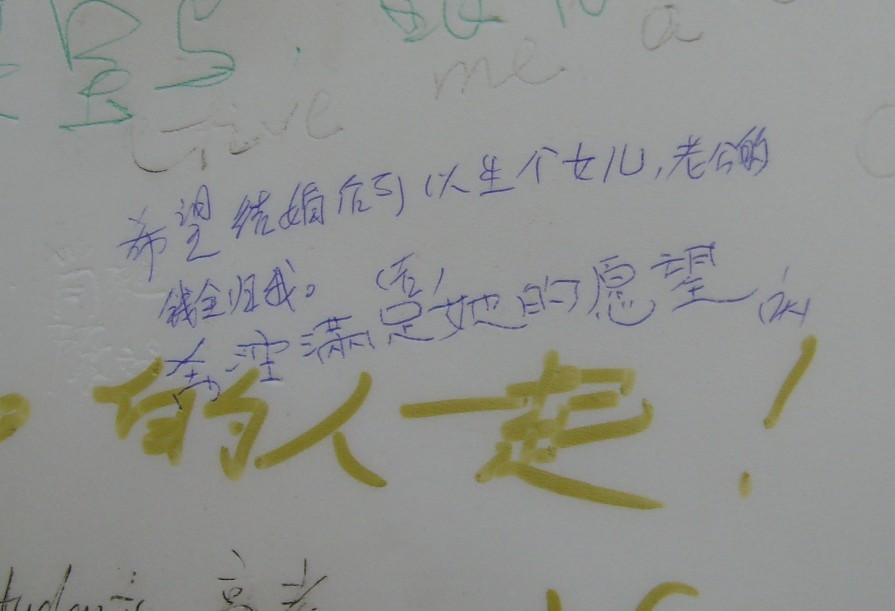 Give me a
希望结婚后可以生个女儿,老公的
钱全归我。(右)
希望满足她的愿望
的人一起!